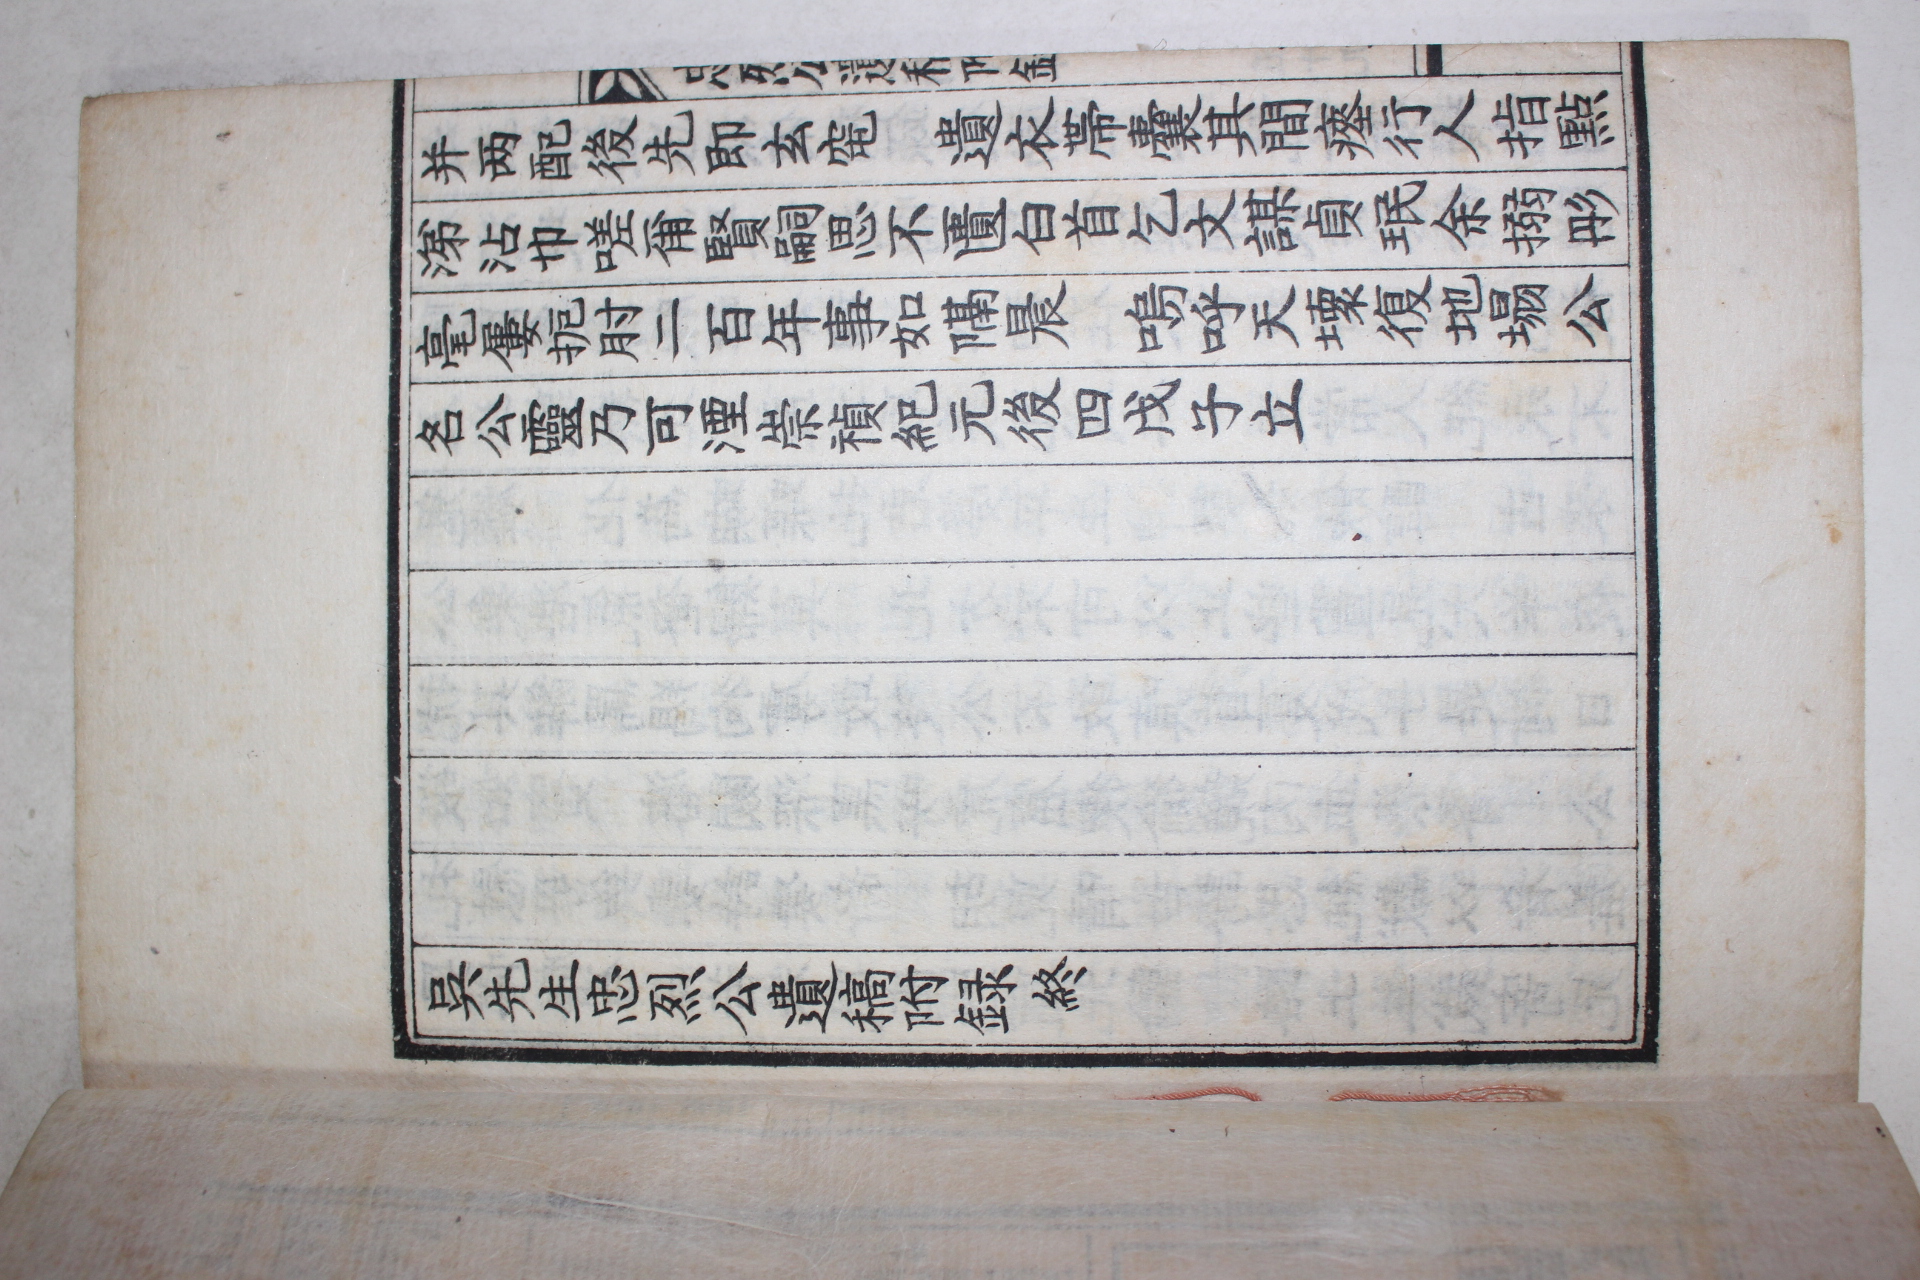 忠烈公遺稿附錄
并两配後先即玄窀 遺衣帶囊其間瘞行人指點
涕沾巾嗟爾賢嗣思不匱白首乞文謀貞珉余搦彤
毫屢扼肘二百年事如隔晨 嗚呼天壞復地塲公
名公靈乃可湮崇禎紀元後四戊子立
吳先生忠烈公遺稿附録 終